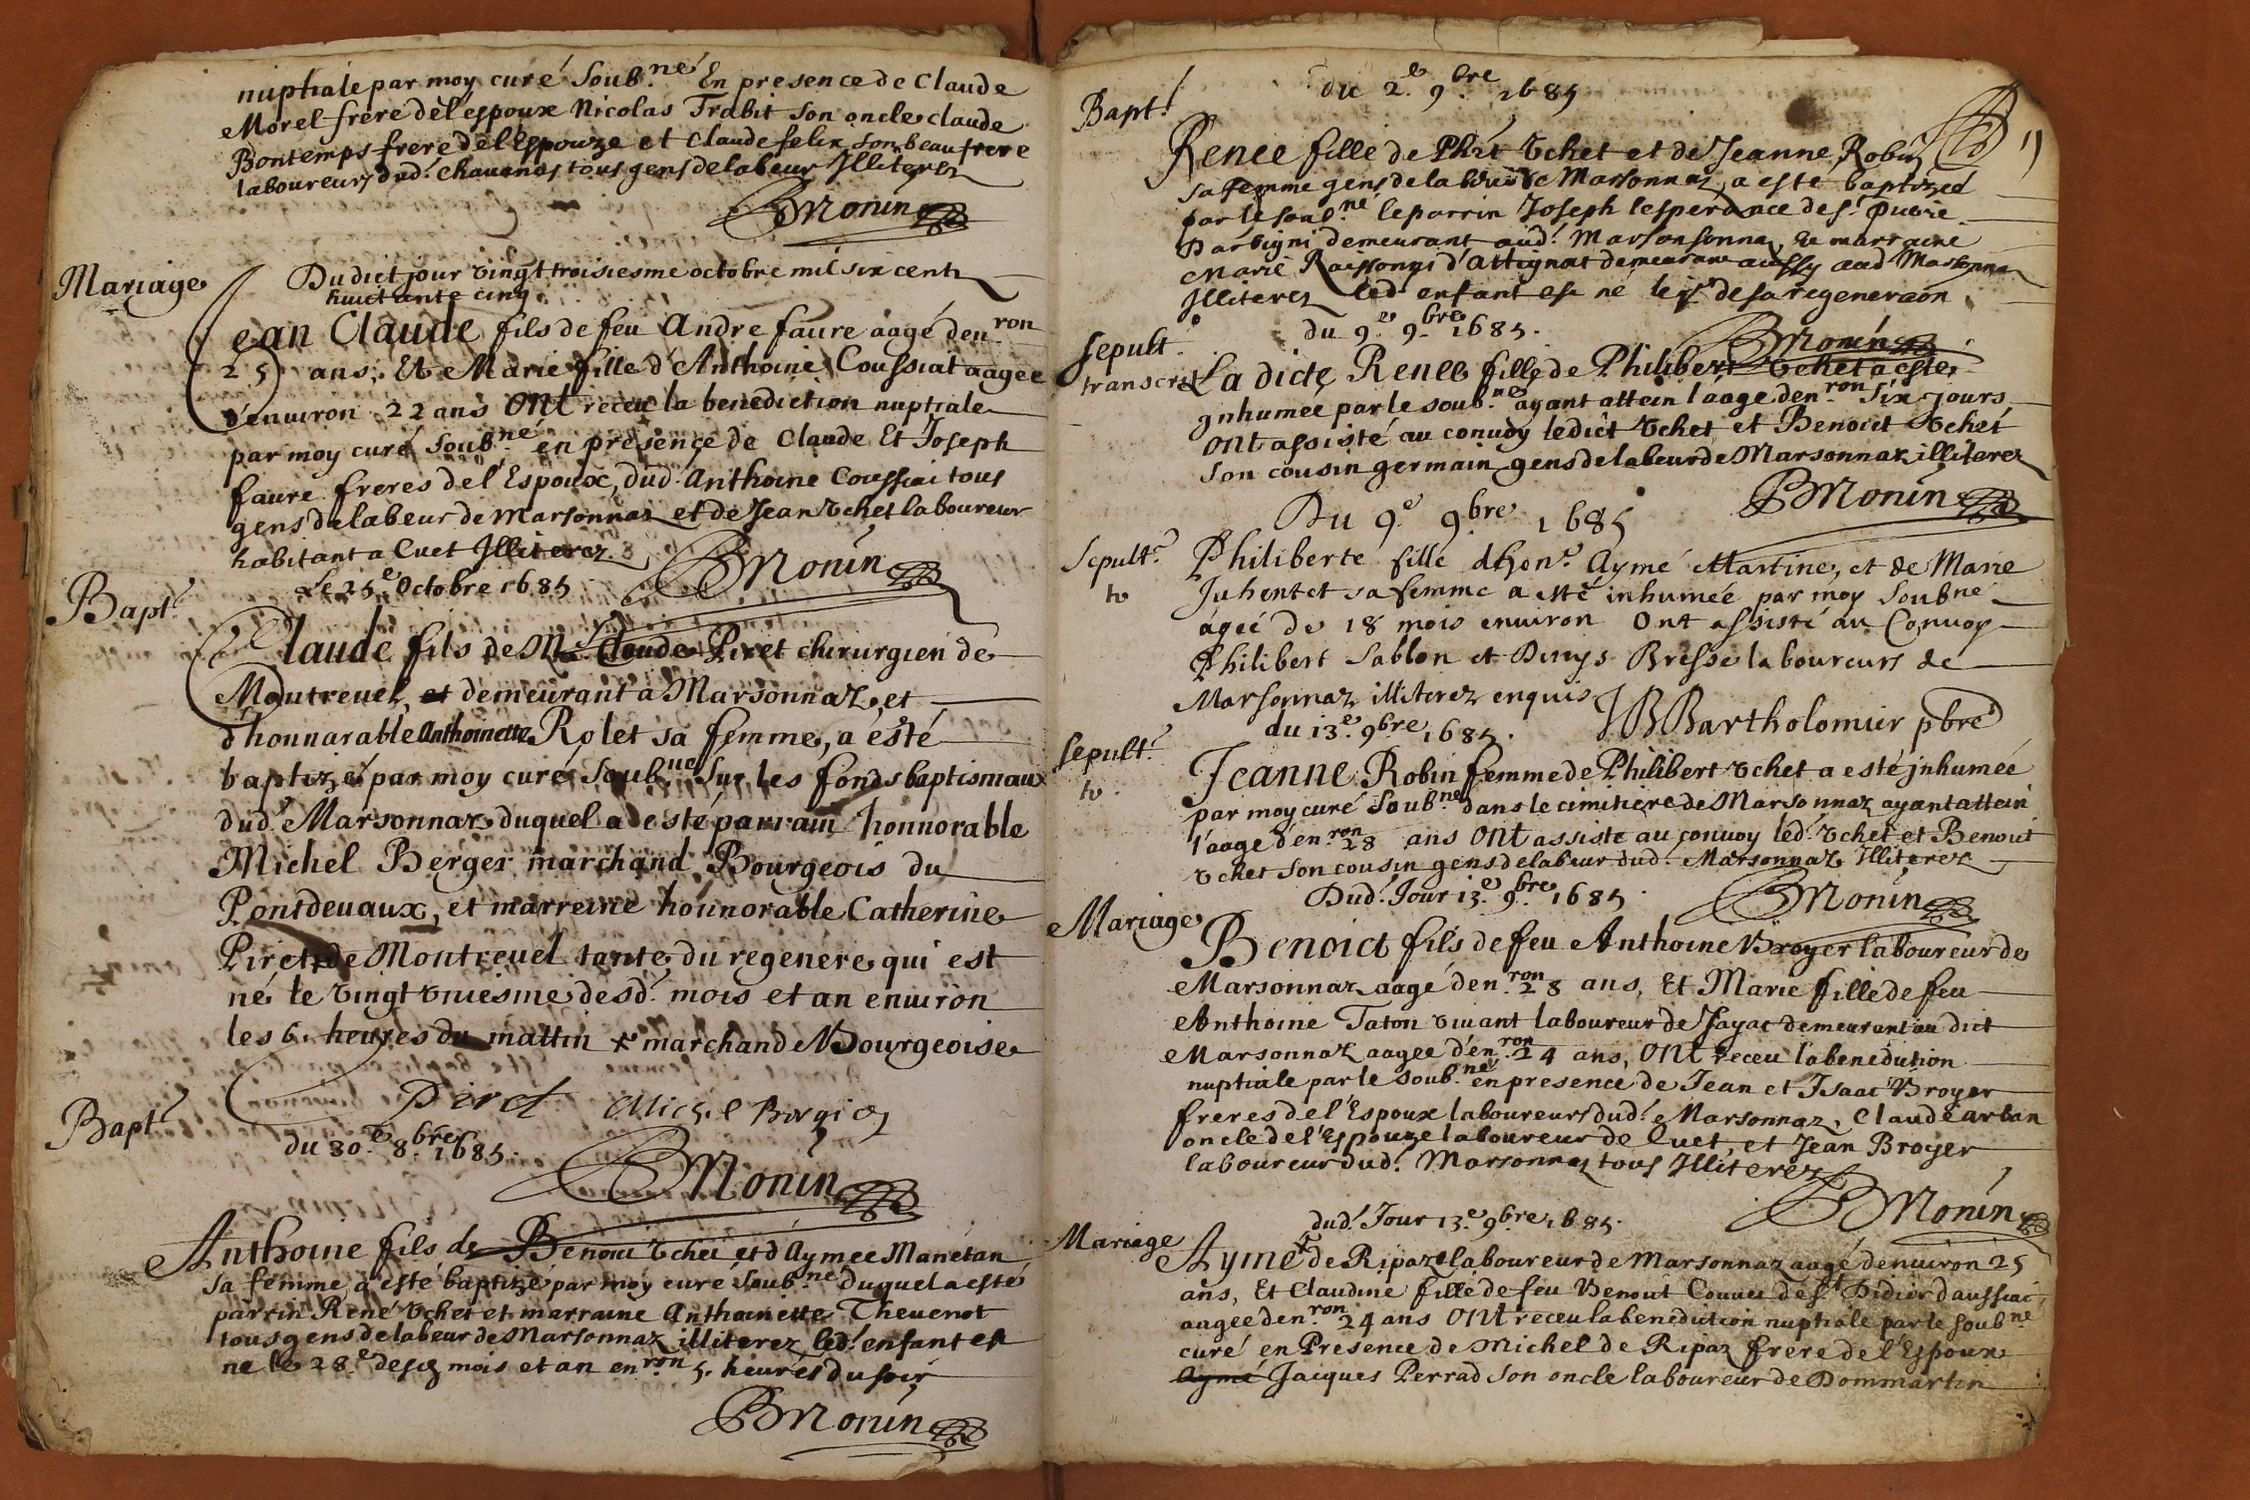 nuptiale par moy curé soub.né En presence de Claude
Morel frere de l'espoux Nicolas Trabit son oncle Claude
Bontemps frere de l'Espouze et Claude felix son beau frere
laboureurs dud. chauanos tous gens de labeur Illiterez
BMonin
Mariage
Du dict jour vingt troisiesme octobre mil six cent
huictante cinq
Jean Claude fils de feu Andre faure aagé d'en.ron
25 ans, Et Marie fille d'Anthoine Coussiat aagee
d'enuiron 22 ans ont receu la benediction nuptiale
par moy curé soub.né en presence de Claude Et Joseph
faure freres de l'Espoux, dud. Anthoine Coussiat tous
gens de labeur de Marsonnaz et de Jean Vchet laboureur
habitant a Cuet Illiterez
BMonin
Bapt.
Le 25.e Octobre 1685
Claude fils de M.e Claude Piret chirurgien de
Montreuel, et demeurant a Marsonnaz, et
d'honnarable Anthoinette Rolet sa femme, a ésté
baptizé par moy curé soub.né sur les fonds baptismaux
dud. Marsonnaz duquel a esté parrain honnorable
Michel Berger marchand Bourgeois du
Pontdeuaux, et marreine honnorable Catherine
Piret de Montreuel tante du regenere qui est
né le vingt vniesme desd. mois et an enuiron
les 6. heures du mattin + marchande Bourgeoise
Piret
BMonin
Bapt.
du 30.e 8.bre 1685.
Anthoine fils de Benoict Vchet et d'Aymee Manetan
sa femme, a esté baptizé par moy curé soub.né duquel a esté
parrin René Vchet et marraine Anthoinette Theuenot
tous gens de labeur de Marsonnaz illiterez, led. enfant est
né le 28.e desd. mois et an en.ron 5. heures du soir
BMonin
Bapt.
du 2.e 9.bre 1685
Renee fille de Phi.t Vchet et de Jeanne Robin
sa femme gens de labeur de Marsonnaz, a esté baptizeé
par le soub.né le parrin Joseph l'esperance de s.t
demeurant aud. Marsonnaz, Et marraine
Marie d'Attignat demeurant aussy aud Marsonnaz
Illiterez led. enfant est né le jr. de sa regeneraon
BMonin
Sepult.
transcrit
du 9.e 9.bre 1685.
La dicte Renee fille de Philibert Vchet a este
jnhumée par le soub.né ayant attein l'aage d'en.ron six jours
ont assisté au conuoy ledict Vchet et Benoict Vchet
son cousin germain gens de labeur de Marsonnaz illiterez
BMonin
Sepult.e
tr
Du 9.e 9.bre 1685
Philiberte fille d'hon.e Aymé Martine, et de Marie
Juhentet sa femme a esté inhumeé par moy soubné
ageé de 18 mois enuiron ont assisté au Conuoy
Philibert Sablon et Denys Bresse laboureurs de
Marsonnaz illiterez enquis
JBBartholomier pbre
Sepult.e
tr
du 13.e 9bre 1685.
Jeanne Robin femme de Philibert Vchet a esté jnhumée
par moy curé soub.né dans le cimitiere de Marsonnaz ayant attein
l'aage d'en.ron 28 ans ont assiste au conuoy led. Vchet et Benoict
Vchet son cousin gens de labeur dud. Marsonnaz Illiterez
BMonin
Mariage
Dud. Jour 13.e 9.bre 1685
Benoict fils de feu Anthoine Broyer laboureur de
Marsonnaz aagé d'en.ron 28 ans, Et Marie fille de feu
Anthoine Taton viuant laboureur de Jayat demeurant au dict
Marsonnaz aagee d'en.ron 24 ans, ont receu la benediction
nuptiale par le soub.né en presence de Jean et Isaac Broyer
freres de l'Espoux laboureurs dud. Marsonnaz, Claude arban
oncle de l'Espouze laboureur de Cuet, et Jean Broyer
laboureur dud. Marsonnaz tous Illiterez
BMonin
Mariage
dud. Jour 13.e 9.bre 1685.
Aymé de Ripaz laboureur de Marsonnaz aagé d'enuiron 25
ans, Et Claudine fille de feu Benoit Couuet de s.t Didier d'aussiat
aagee d'en.ron 24 ans ont receu la benediction nuptiale par le soub.né
curé en Presence de Michel de Ripaz frere de l'Espoux
Aymé Jacques Perrad son oncle laboureur de Dommartin